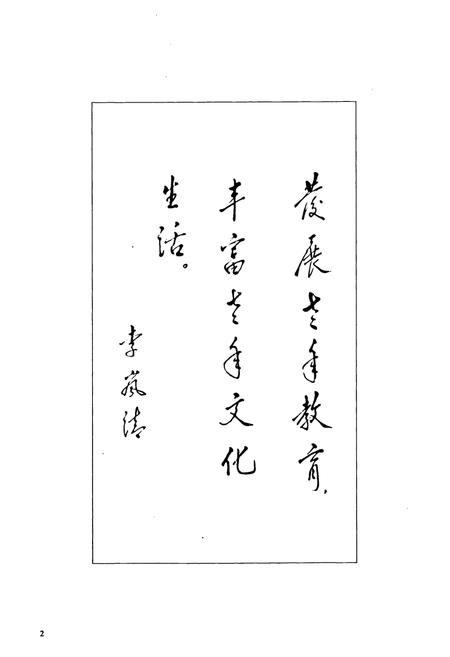 發展老年教育，
丰富老年文化
生活。
李岚清
2